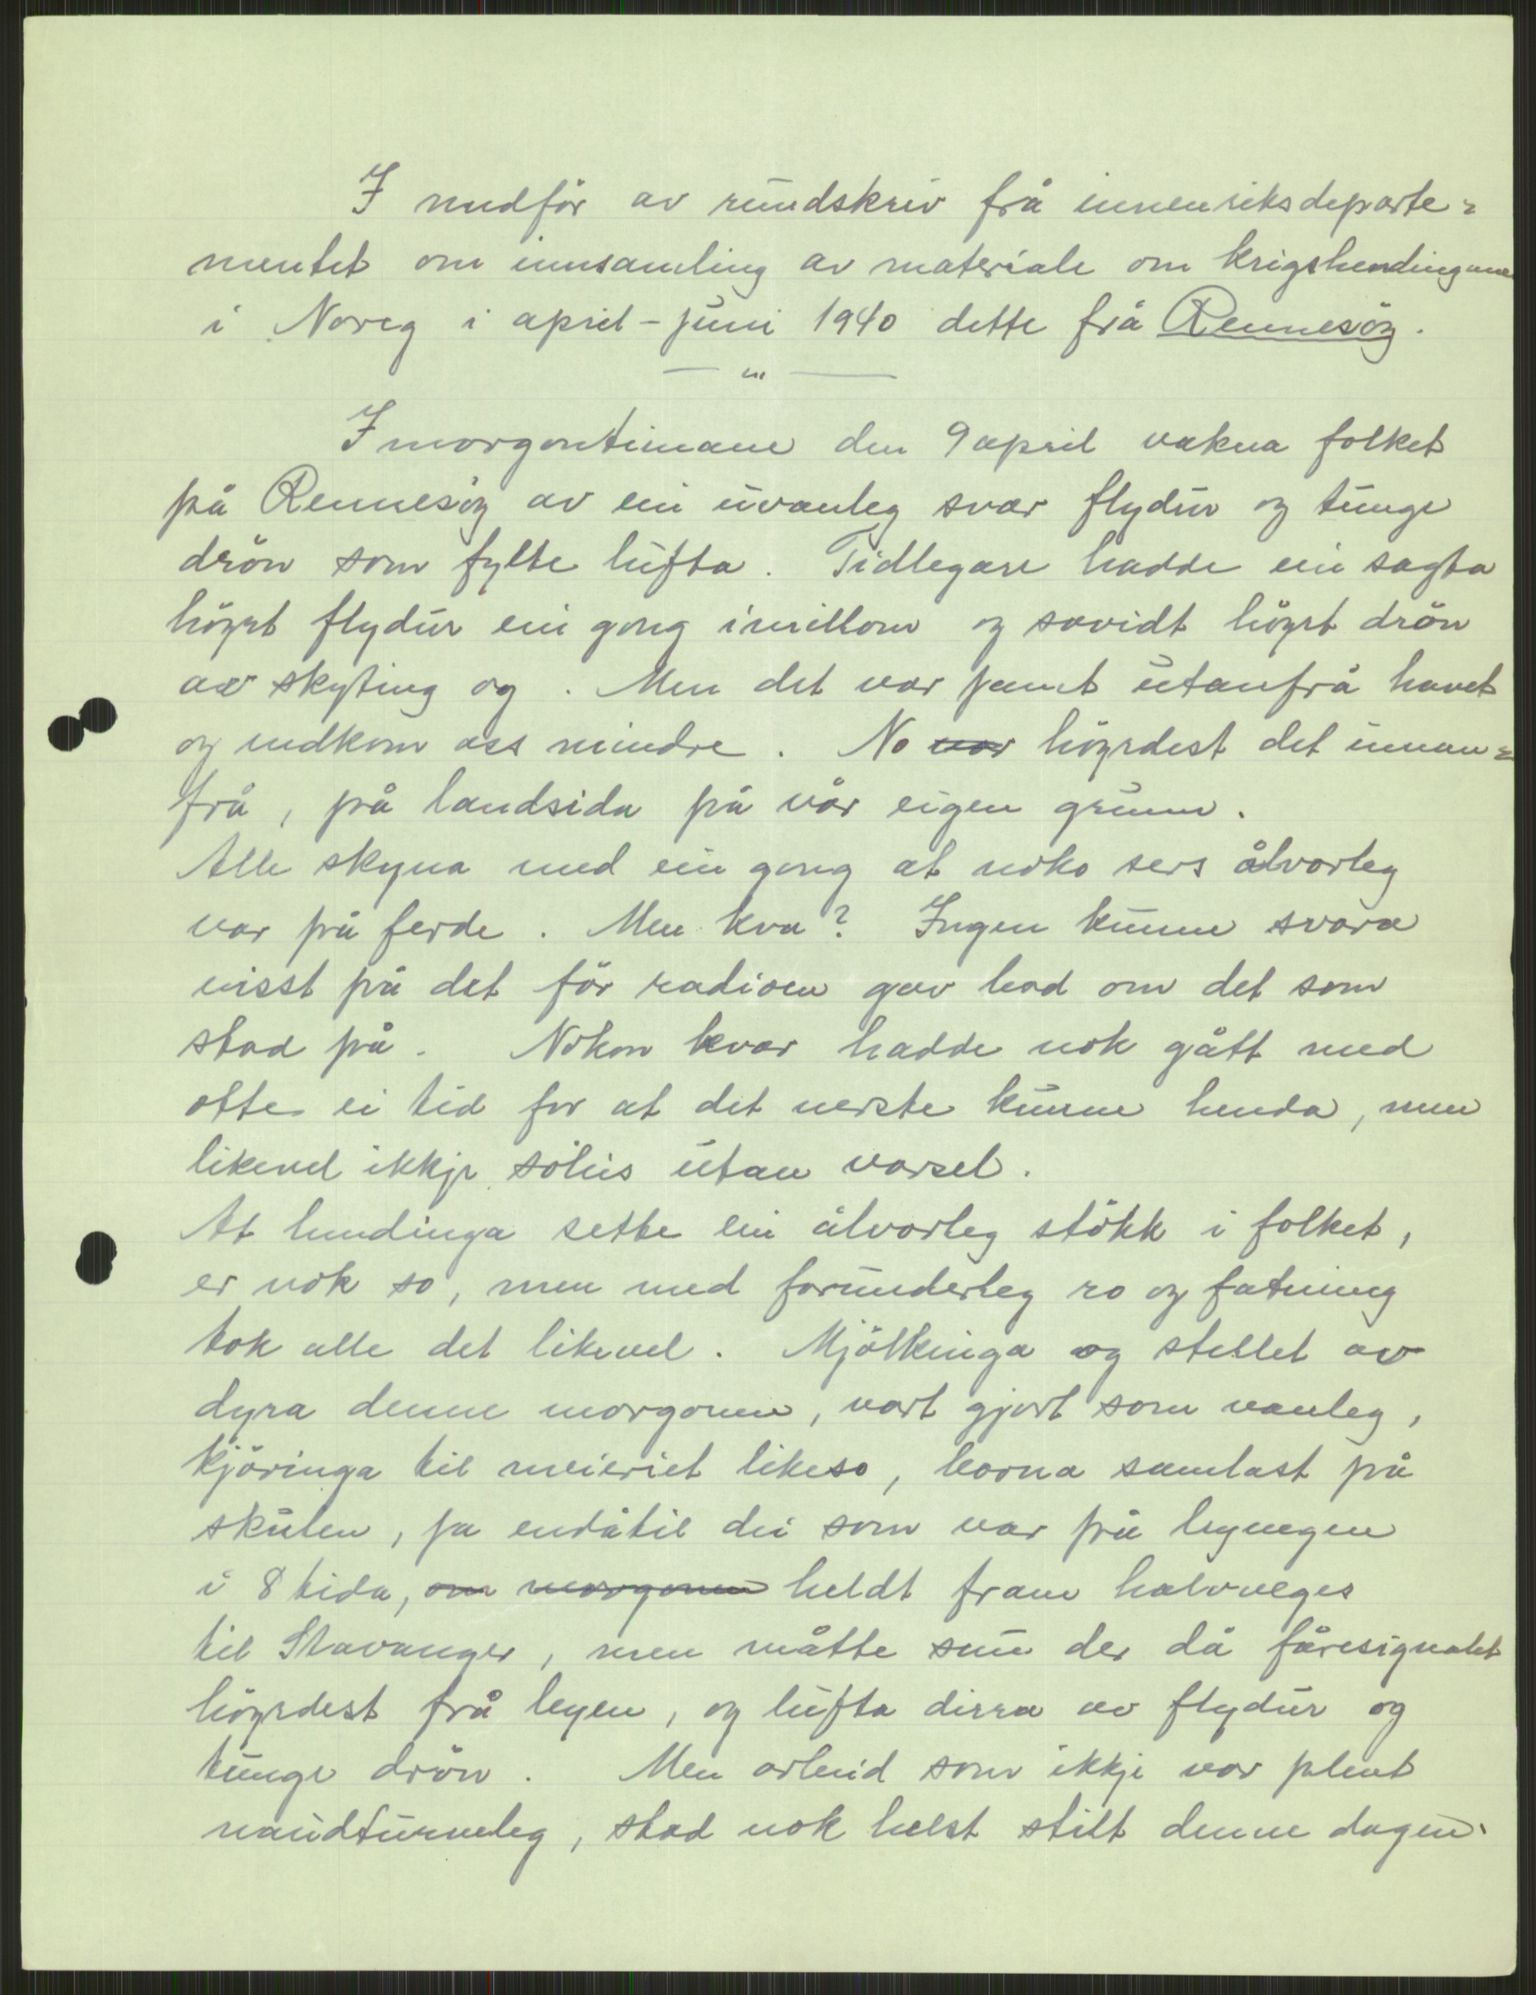 I medför av rundskriv frå innenriksdeparte=
mentet om innsamling av materiale om krigshendingane
i Noreg i april-juni 1940 dette frå Rennesöy.
— " —
I morgontimane den 9 april vakna folket
på Rennesöy av ein uvanleg svær flydur og tunge
drön som fylte lufta. Tidlegare hadde ein sagta
höyrt flydur ein gong imillom og sovidt höyrt drön
av skyting og. Men det var jamt utanfrå havet
og vedkom oss mindre. No var höyrdest det innan=
frå, på landsida på vår eigen grunn.
Alle skyna med ein gong at noko sers ålvorleg
var på ferde. Men kva? Ingen kunne svara
visst på det för radioen gav bod om det som
stod på. Nokon kvar hadde nok gått med
otte ei tid for at det verste kunne henda, men
likevel ikkje solus utan varsel.
At hendinga sette ein ålvorleg stökk i folket,
er nok so, men med forunderleg ro og fatning
tok alle det likevel. Mjölkinga og stellet av
dyra denne morgonen, vart gjort som vanleg,
kjöringa til meieriet likeso, borna samlast på
skulen, ja endåtil dei som var på byvegen
i 8 tida, om morgonen heldt fram halvveges
til Stavanger, men måtte snu der då fåresignalet
höyrdest frå byen, og lufta dirra av flydur og
tunge drön. Men arbeid som ikkje var plent
naudturveleg, stod nok helst stilt denne dagen.